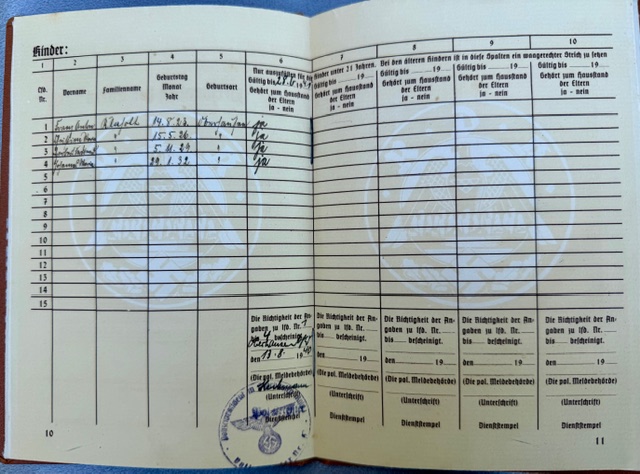 Kinder:
1 2 3 4 5 6 7 8 9 10
Nur auszufüllen für Kinder unter 21 Jahren. Bei den älteren Kindern ist in diese Spalten ein waagerechter Strich zu setzen
Lfd. Nr. Vorname Familienname Geburtstag Monat Jahr Geburtsort
Gültig bis 19 Gehört zum Hausstand der Eltern ja - nein
Gültig bis 19 Gehört zum Hausstand der Eltern ja - nein
Gültig bis 19 Gehört zum Hausstand der Eltern ja - nein
Gültig bis 19 Gehört zum Hausstand der Eltern ja - nein
Gültig bis 19 Gehört zum Hausstand der Eltern ja - nein
1 14.8.23. ja
2 " 15.5.26 " ja
3 " 5.11.29 " ja
4 " 29.1.32 " ja
5
6
7
8
9
10
11
12
13
14
15
Die Richtigkeit der Angaben zu lfd. Nr. 1 bis 4 bescheinigt.
den 13.8. 1940
(Die pol. Meldebehörde)
(Unterschrift)
Dienststempel
Die Richtigkeit der Angaben zu lfd. Nr. bis bescheinigt.
den 19
(Die pol. Meldebehörde)
(Unterschrift)
Dienststempel
Die Richtigkeit der Angaben zu lfd. Nr. bis bescheinigt.
den 19
(Die pol. Meldebehörde)
(Unterschrift)
Dienststempel
Die Richtigkeit der Angaben zu lfd. Nr. bis bescheinigt.
den 19
(Die pol. Meldebehörde)
(Unterschrift)
Dienststempel
Die Richtigkeit der Angaben zu lfd. Nr. bis bescheinigt.
den 19
(Die pol. Meldebehörde)
(Unterschrift)
Dienststempel
10
11